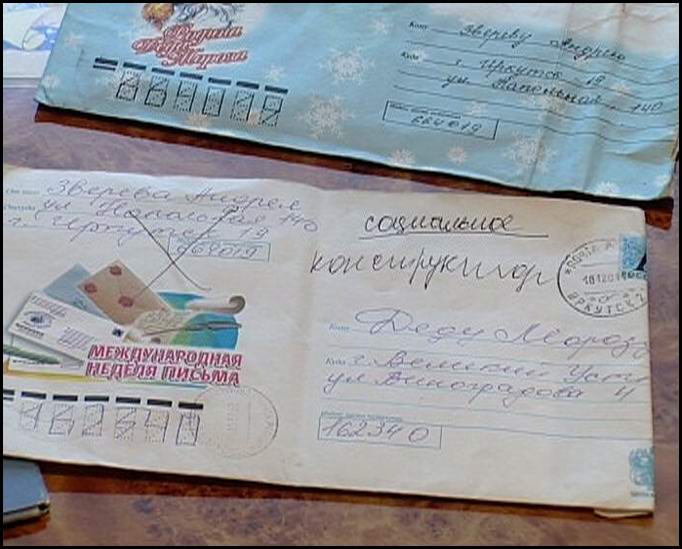 Родина
Деда
Мороза
Кому Звереву Андрею
Куда г. Иркутск - 19
ул. Напольная, 140
664019
664019
Зверева Андрея
ул Напольная 140
г. Иркутск
664019
социальное
конструктор
ПОЧТА
ИРКУТСК 2
Кому Деду Морозу
Куда г. Великий Устю
ул Виноградова 4
162340
МЕЖДУНАРОДНАЯ
НЕДЕЛЯ ПИСЬМА
162340